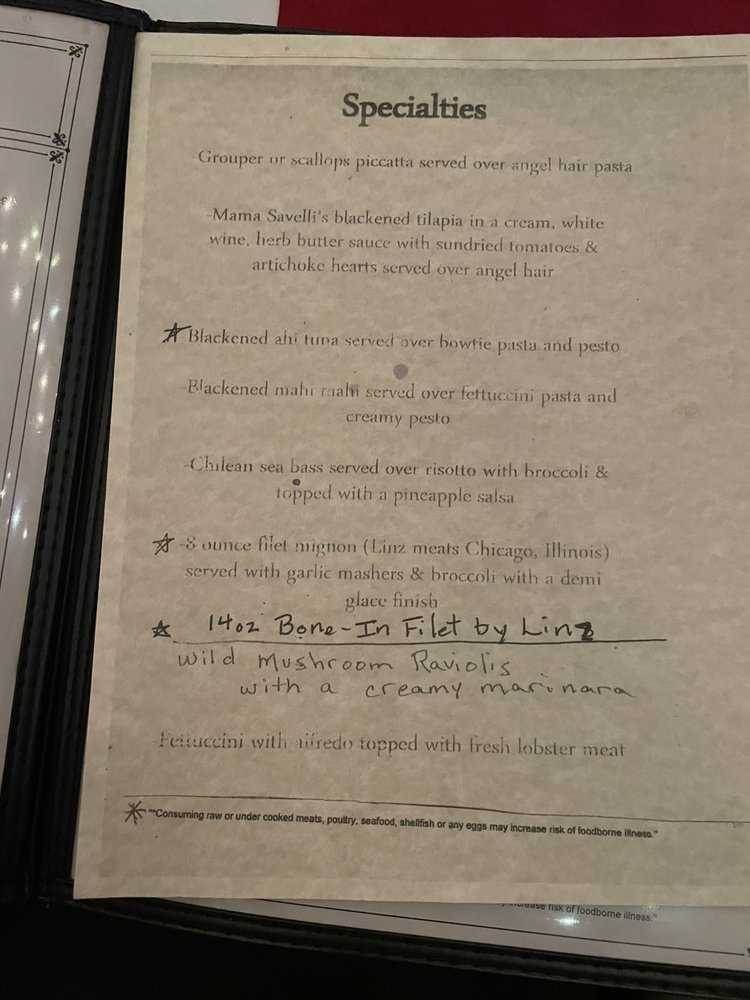 Specialties
-Grouper or scallops piccatta served over angel hair pasta
-Mama Savelli's blackened tilapia in a cream, white
wine, herb butter sauce with sundried tomatoes &
artichoke hearts served over angel hair
Blackened ahi tuna served over bowtie pasta and pesto
-Blackened mahi mahi served over fettuccini pasta and
creamy pesto
-Chilean sea bass served over risotto with broccoli &
topped with a pineapple salsa
-8 ounce filet mignon (Linz meats Chicago, Illinois)
served with garlic mashers & broccoli with a demi
glace finish
14oz Bone-In Filet by Linz
Wild Mushroom Raviolis
with a creamy marinara
-Fettuccini with alfredo topped with fresh lobster meat
*""Consuming raw or under cooked meats, poultry, seafood, shellfish or any eggs may increase risk of foodborne illness."
increase risk of foodborne illness."